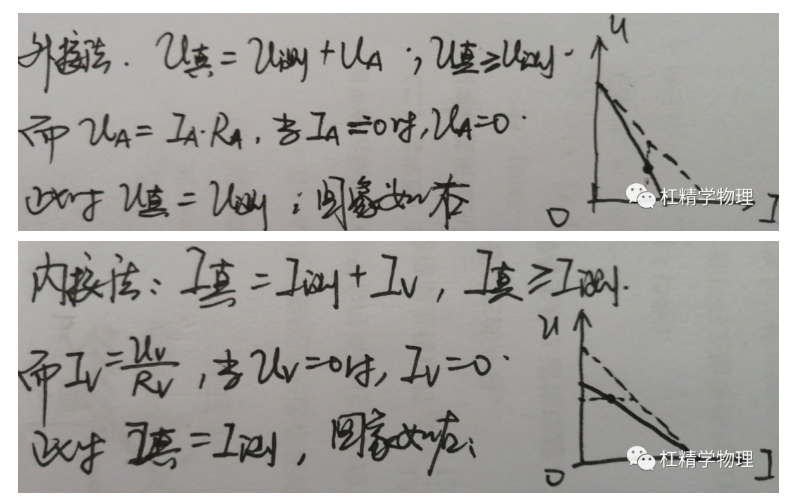 外接法. U真=U测+UA ; U真≥U测.
U
而 UA=IA·RA, 当 IA=0时, UA=0.
此时 U真=U测 ; 图象如右
杠精学物理
O
I
内接法: I真=I测+IV, I真≥I测.
U
而 IV=UV/RV, 当 UV=0时, IV=0.
此时 I真=I测, 图象如右;
杠精学物理
O
I